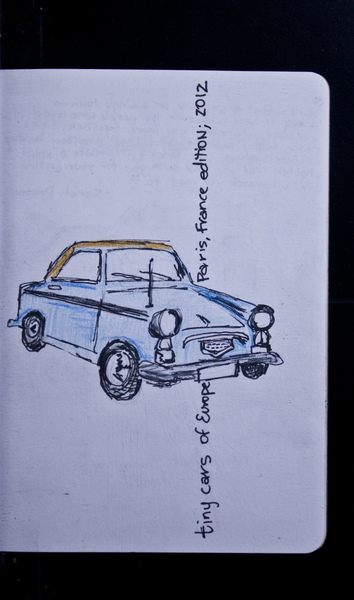 tiny cars of Europe Paris, France edition; 2012